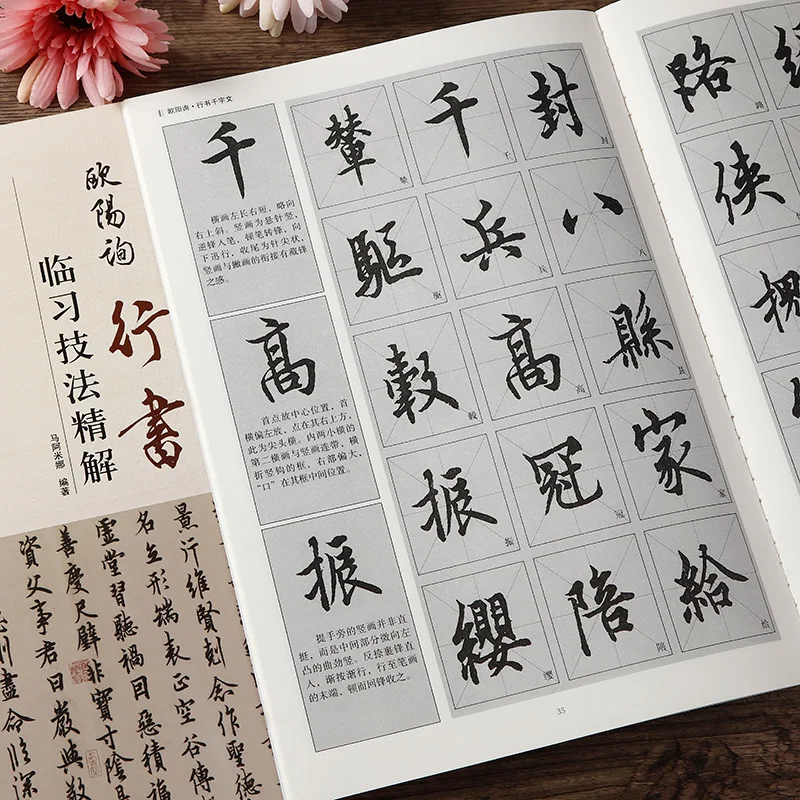 欧陽詢
行書
临习技法精解
马阿米娜 编著
景行維賢剋念作聖德
名立形端表正空谷傳
虛堂習聽禍因惡積福
善慶尺璧非寶寸陰是
資父事君曰嚴與敬
盡命臨深
欧阳询·行书千字文
千
横画左长右短,略向
右上斜。竖画为悬针竖,
逆锋入笔,顿笔转锋,向
下迅行,收尾为针尖状,
竖画与撇画的衔接有藏锋
之感。
高
首点放中心位置,首
横偏左放,点在其右上方,
此为尖头横。内两小横的
第二横画与竖画连带,横
折竖钩的框,右部偏大,
“口”在其框中间位置。
振
提手旁的竖画并非直
挺,而是中间部分微向左
凸的曲劲竖。反捺裹锋直
入,渐按渐行,行至笔画
的末端,顿而回锋收之。
封 封
八 八
縣 县
家 家
給 给
千 千
兵 兵
高 高
冠 冠
陪 陪
輦 辇
驅 驱
轂 毂
振 振
纓 缨
35
路
俠
槐